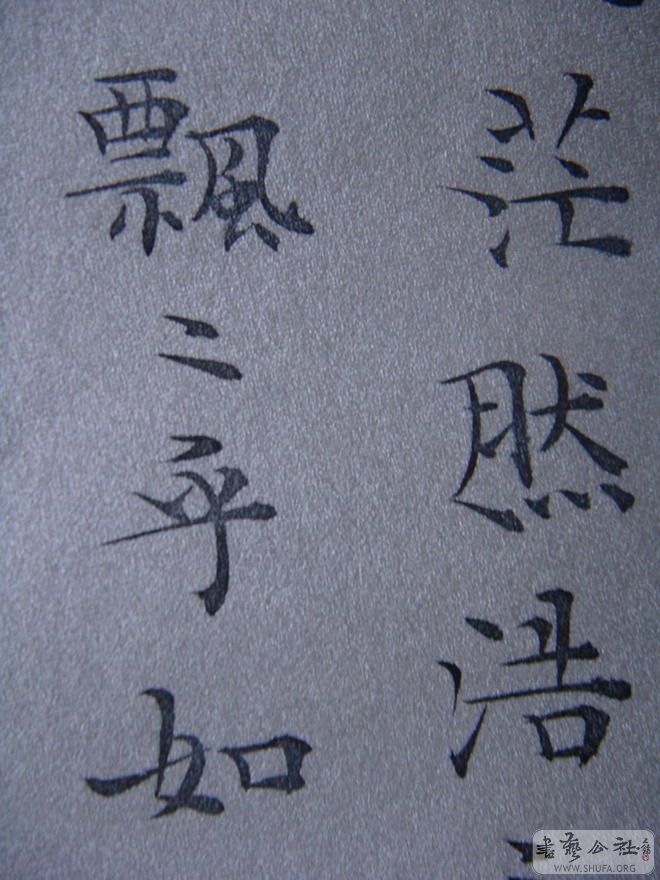 茫然浩
飄二乎如
書藝公社
WWW.SHUFA.ORG